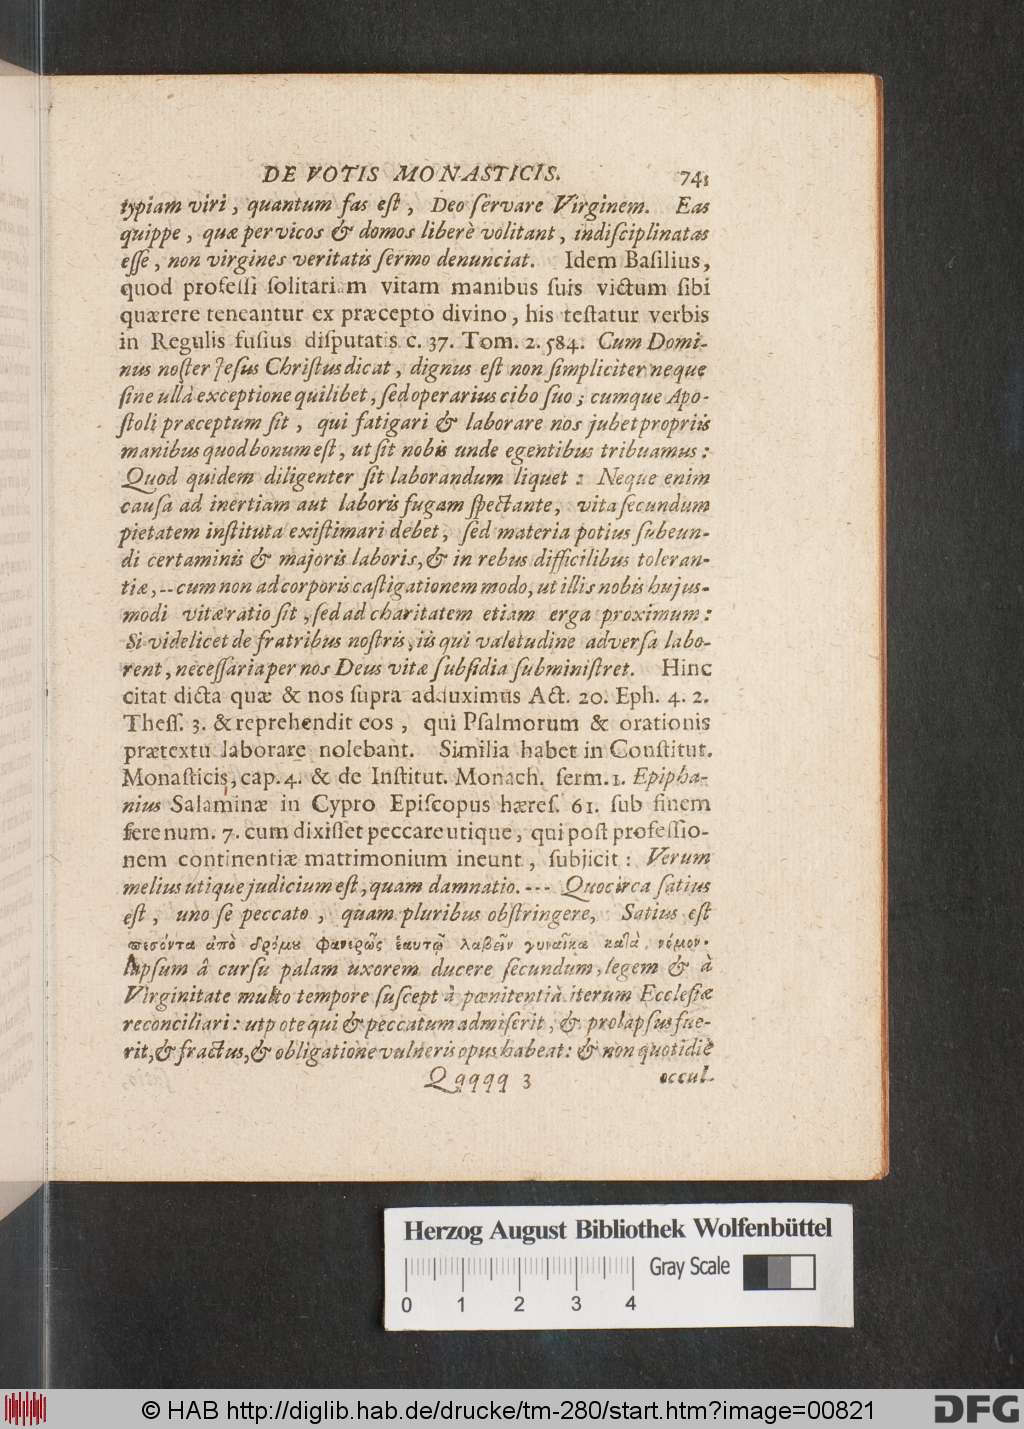 DE VOTIS MONASTICIS. 741
typiam viri, quantum fas eſt, Deo ſervare Virginem. Eas
quippe, quæ per vicos & domos liberè volitant, indiſciplinatas
eſſe, non virgines veritatis ſermo denunciat. Idem Baſilius,
quod profeſſi ſolitariam vitam manibus ſuis victum ſibi
quærere teneantur ex præcepto divino, his teſtatur verbis
in Regulis fuſius diſputatis c. 37. Tom. 2. 584. Cum Domi-
nus noſter Jeſus Chriſtus dicat, dignus eſt non ſimpliciter neque
ſine ullà exceptione quilibet, ſed operarius cibo ſuo; cumque Apo-
ſtoli præceptum ſit, qui fatigari & laborare nos jubet propriis
manibus quod bonum eſt, ut ſit nobis unde egentibus tribuamus:
Quod quidem diligenter ſit laborandum liquet: Neque enim
cauſa ad inertiam aut laboris fugam ſpectante, vita ſecundum
pietatem inſtituta exiſtimari debet, ſed materia potius ſubeun-
di certaminis & majoris laboris, & in rebus difficilibus toleran-
tiæ, -- cum non ad corporis caſtigationem modo, ut illis nobis hujus-
modi vitæ ratio ſit, ſed ad charitatem etiam erga proximum:
Si videlicet de fratribus noſtris, iis qui valetudine adverſa labo-
rent, neceſſaria per nos Deus vitæ ſubſidia ſubminiſtret. Hinc
citat dicta quæ & nos ſupra adduximus Act. 20. Eph. 4. 2.
Theſſ. 3. & reprehendit eos, qui Pſalmorum & orationis
prætextu laborare nolebant. Similia habet in Conſtitut.
Monaſticis, cap. 4. & de Inſtitut. Monach. ſerm. 1. Epipha-
nius Salaminæ in Cypro Epiſcopus hæreſ. 61. ſub finem
fere num. 7. cum dixiſſet peccare utique, qui poſt profeſſio-
nem continentiæ matrimonium ineunt, ſubjicit: Verum
melius utique judicium eſt, quam damnatio. --- Quocirca ſatius
eſt, uno ſe peccato, quam pluribus obſtringere, Satius eſt
πεσόντα ἀπὸ δρόμου φανερῶς ἑαυτῷ λαβεῖν γυναῖκα κατὰ νόμον.
lapſum â curſu palam uxorem ducere ſecundum legem & à
Virginitate multo tempore ſuſceptà pœnitentià iterum Eccleſiæ
reconciliari: utpote qui & peccatum admiſerit, & prolapſus fue-
rit, & fractus, & obligatione vulneris opus habeat: & non quotidiè
Qqqqq 3 occul-
Herzog August Bibliothek Wolfenbüttel
Gray Scale
0 1 2 3 4
© HAB http://diglib.hab.de/drucke/tm-280/start.htm?image=00821
DFG